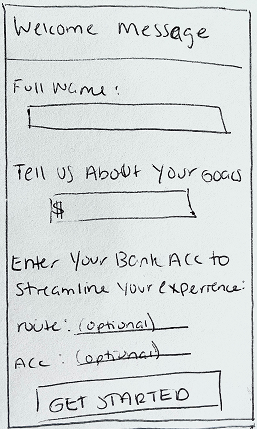 Welcome Message
Full Name:
Tell us About Your Goals
$
Enter Your Bank Acc to
Streamline Your experience:
route: (optional)
Acc: (optional)
GET STARTED